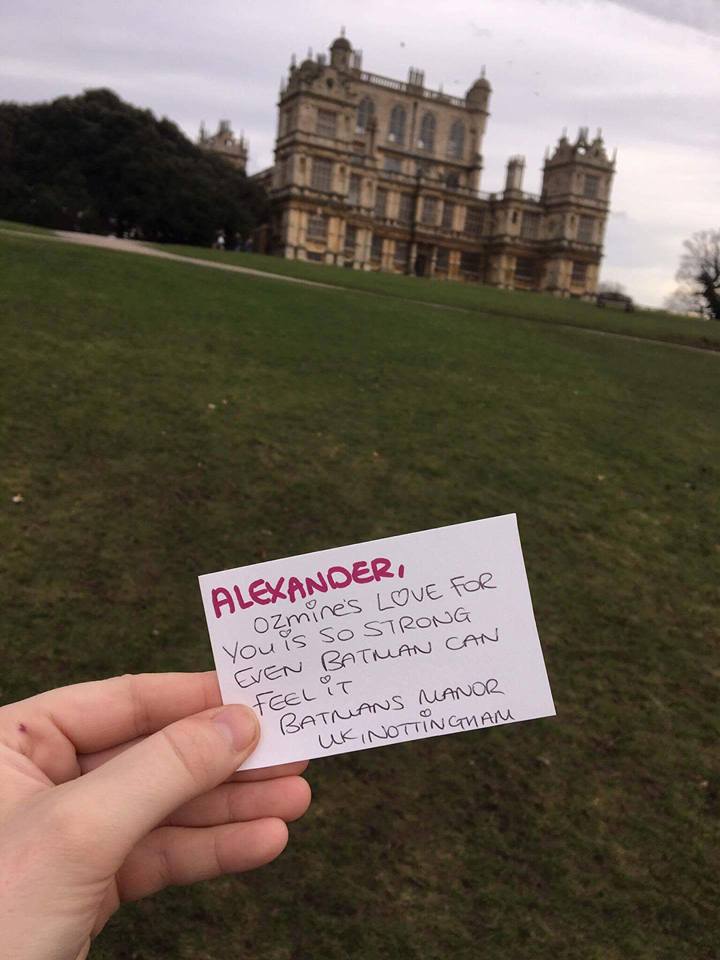 ALEXANDER,
OZmine's LOVE FOR
YOU is SO STRONG
EVEN BATMAN CAN
FEEL iT
BATMANS MANOR
UK, NOTTINGHAM